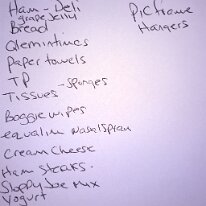 Ham - Deli
grape Jelly
Bread
Clemintines
Paper towels
TP - sponges
Tissues
Baggie wipes
equaline Nasal Spray
Cream Cheese
Ham Steaks.
Sloppy Joe Mix
Yogurt
Pic frame
Hangers